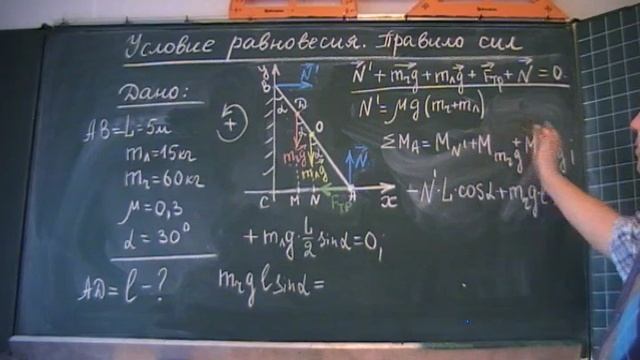 Условие равновесия. Правило сил
Дано:
AB=L=5м
mл=15кг
mг=60кг
μ=0,3
α=30°
AD=l-?
+
y
B
N⃗'
α
D
O
mгg⃗
mлg⃗
N⃗
C M N
Fтр
A
x
N⃗'+mгg⃗+mлg⃗+F⃗тр+N⃗=0
N'=μg(mг+mл)
ΣMA=MN'+Mmгg+M
-N'·L·cosα+mгg·
+mлg·L/2 sinα=0;
mгglsinα=